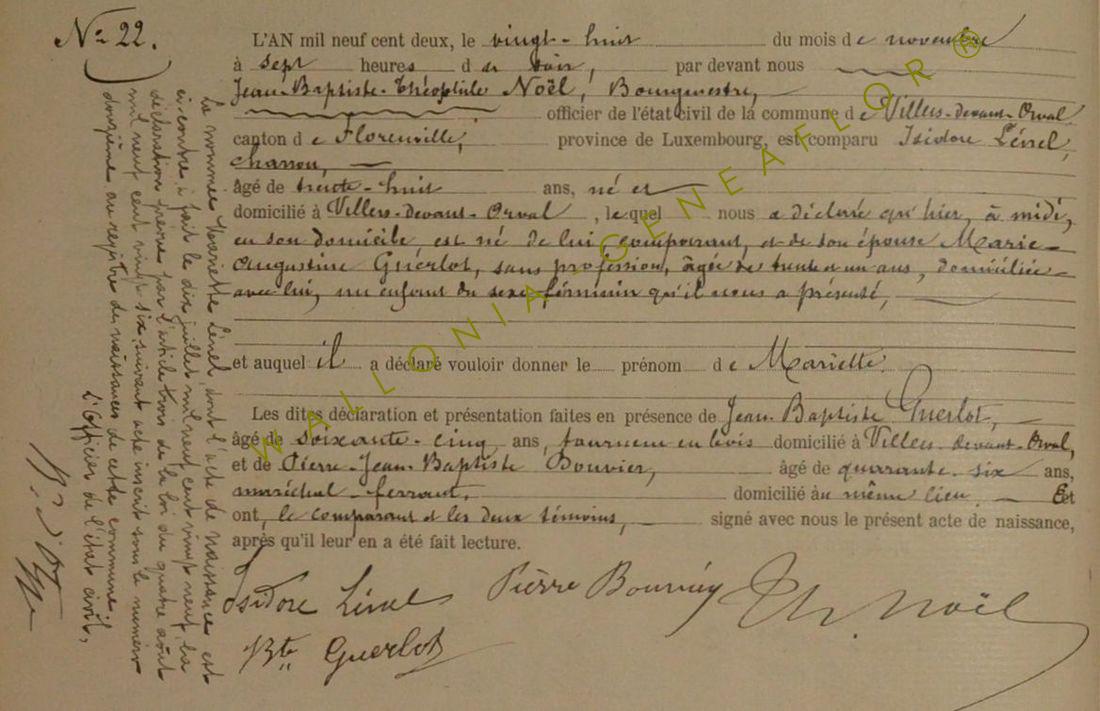 Nº 22.
L'AN mil neuf cent deux, le vingt-huit du mois de novembre
à sept heures du soir, par devant nous
Jean-Baptiste-Théophile Noël, Bourgmestre,
officier de l'état civil de la commune de Villers-devant-Orval
canton de Florenville, province de Luxembourg, est comparu Isidore Lénel,
charron,
âgé de trente-huit ans, né et
domicilié à Villers-devant-Orval, lequel nous a déclaré qu'hier, à midi,
en son domicile, est né de lui, comparant, et de son épouse Marie-
Augustine Guerlot, sans profession, âgée de trente et un ans, domiciliée
avec lui, un enfant du sexe féminin qu'il nous a présenté,
et auquel il a déclaré vouloir donner le prénom de Mariette.
Les dites déclaration et présentation faites en présence de Jean-Baptiste Guerlot,
âgé de soixante-cinq ans, tourneur en bois domicilié à Villers-devant-Orval,
et de Pierre-Jean-Baptiste Bouvier, âgé de quarante-six ans,
maréchal-ferrant, domicilié au même lieu Et
ont, le comparant et les deux témoins, signé avec nous le présent acte de naissance,
après qu'il leur en a été fait lecture.
Isidore Lénel Pierre Bouvier Th. Noël
Bte Guerlot
La nommée Mariette Lénel, dont l'acte de naissance est
ci-contre, a fait le dix juillet mil neuf cent vingt neuf, la
déclaration prévue par l'article trois de la loi du quatre août
mil neuf cent vingt six, suivant acte inscrit sous le numéro
douzième au registre des naissances de cette commune
L'Officier de l'état civil,
WALLONIA GENEAFLOR ®